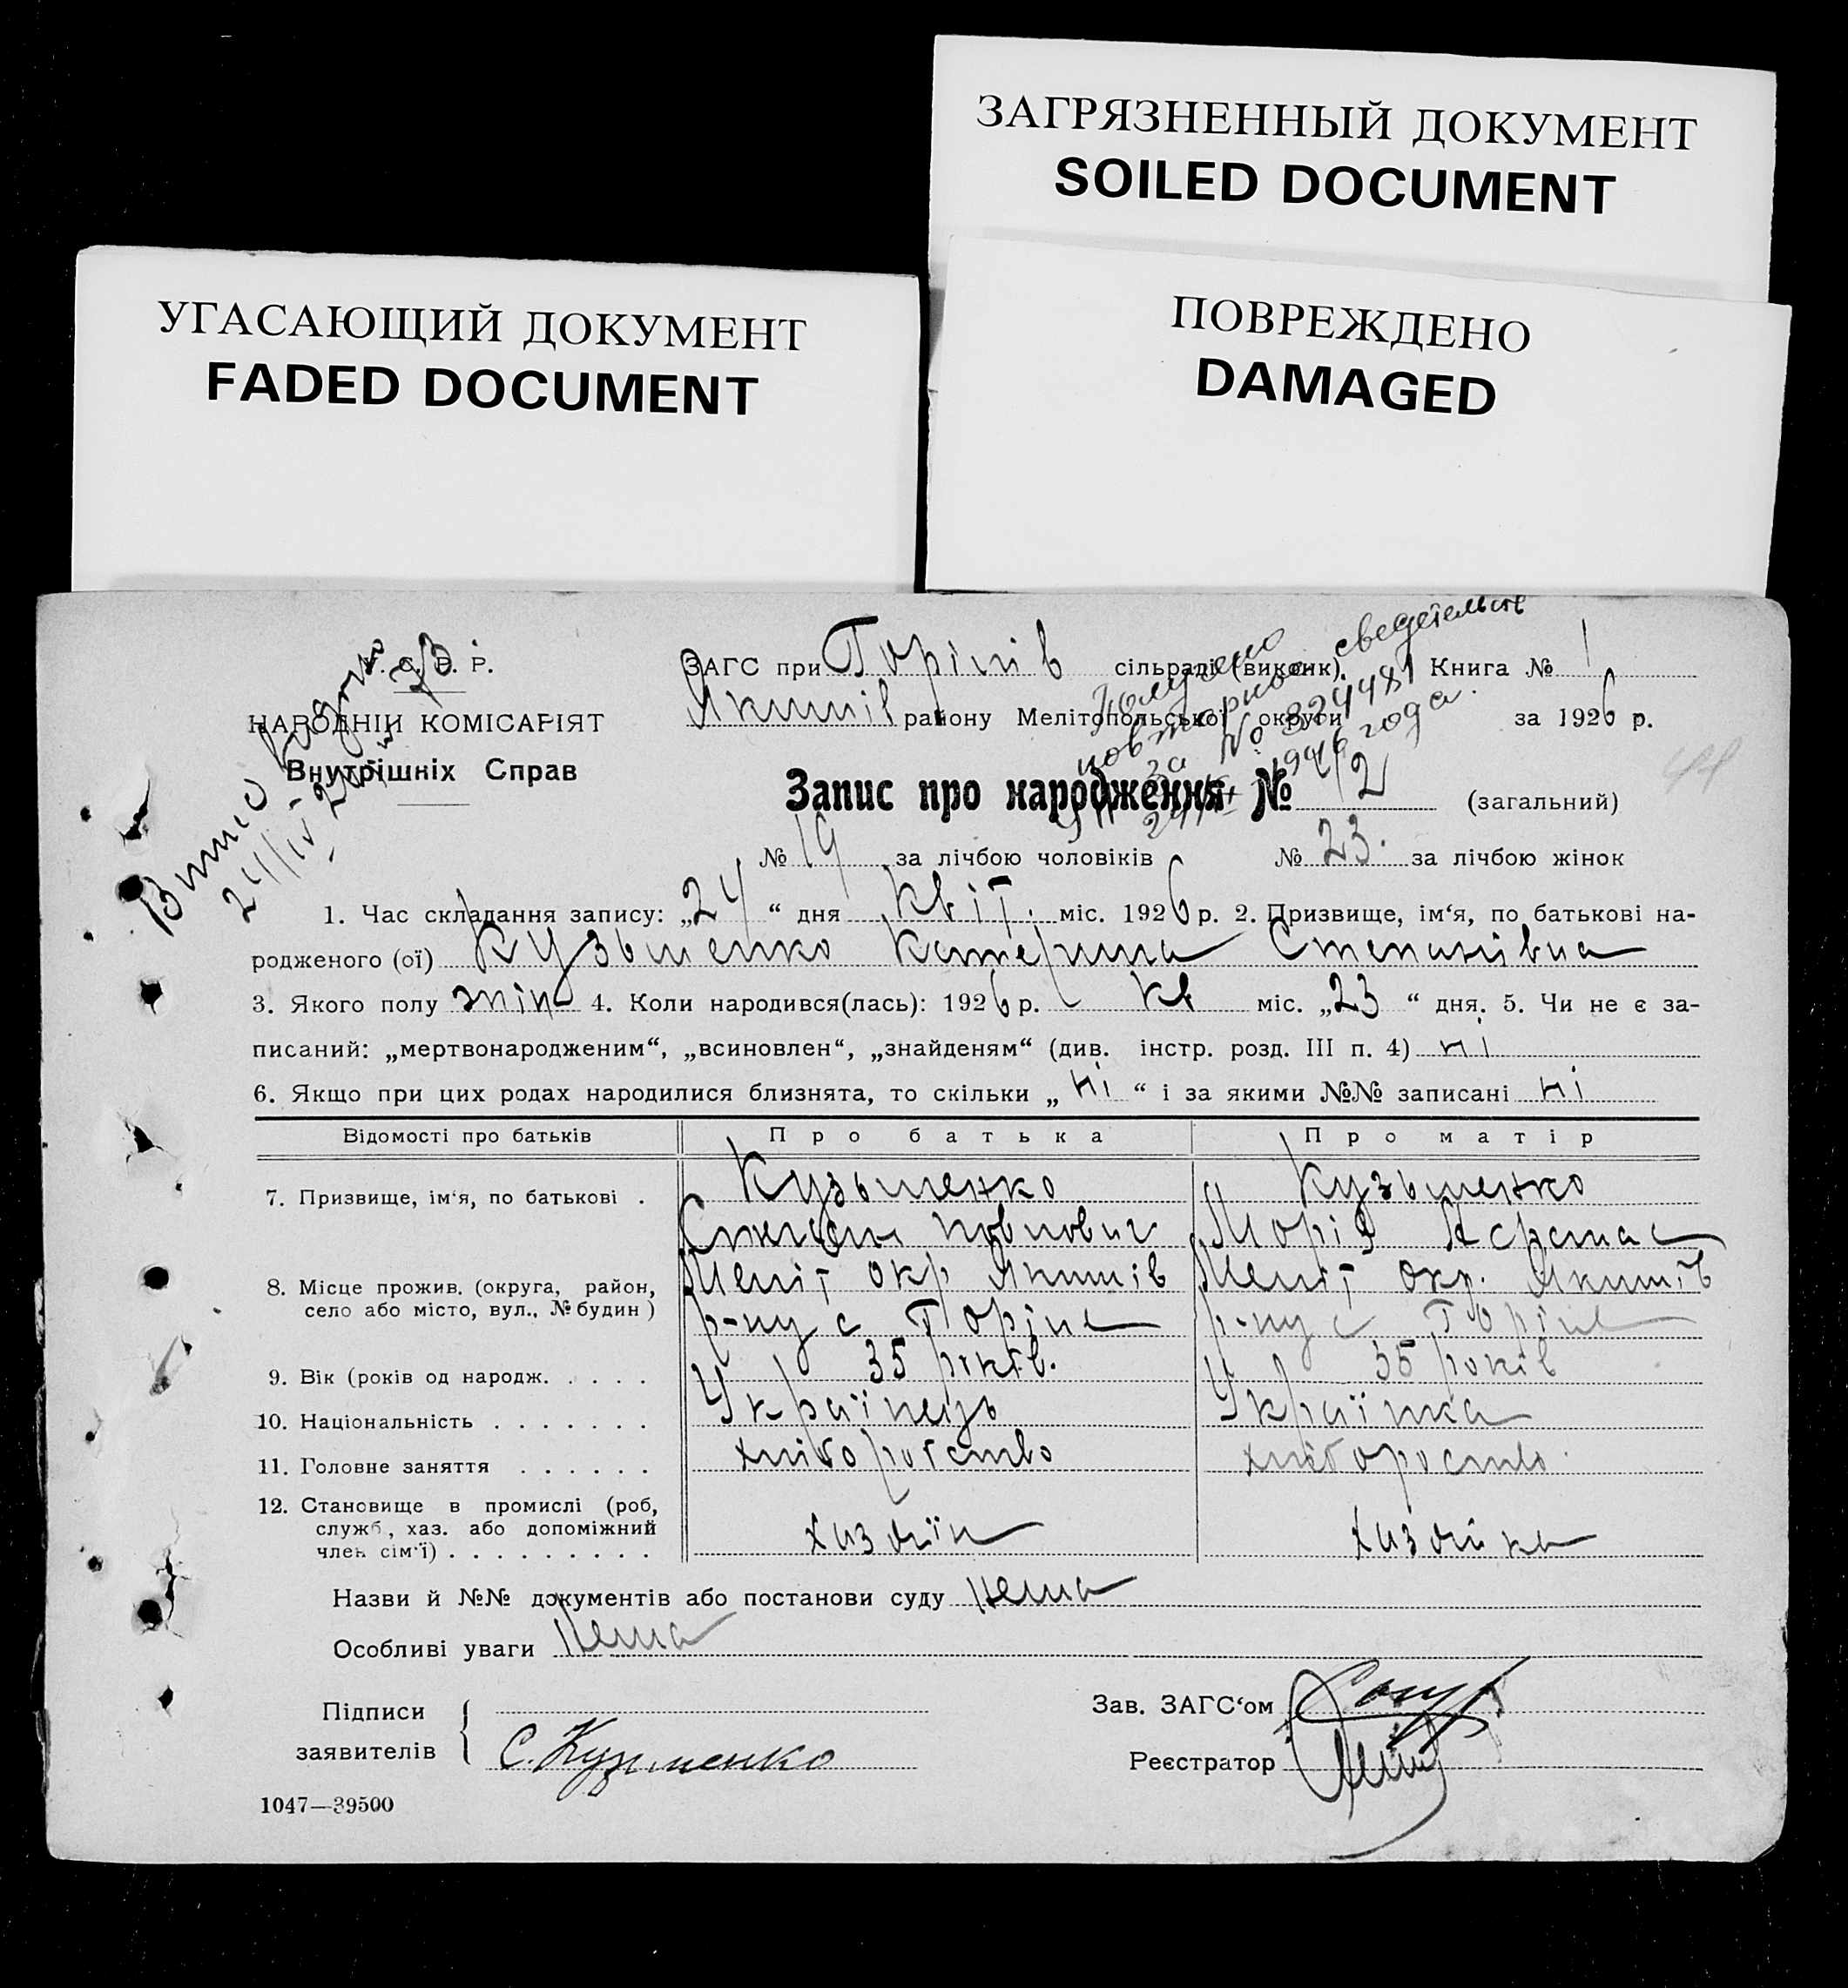 ЗАГРЯЗНЕННЫЙ ДОКУМЕНТ
SOILED DOCUMENT
УГАСАЮЩИЙ ДОКУМЕНТ
FADED DOCUMENT
ПОВРЕЖДЕНО
DAMAGED
С. Р. Р.
НАРОДНІЙ КОМІСАРІЯТ
Внутрішніх Справ
24/IV
ЗАГС при Горілів сільраді (виконк). Книга № 1
Якимів району Мелітопольської округи за 1926 р.
сведетельств
за № 324481
1946 года.
Запис про народження № 42 (загальний)
№ 19 за лічбою чоловіків № 23. за лічбою жінок
1. Час складання запису: „24“ дня квіт. міс. 1926 р. 2. Призвище, ім‘я, по батькові на-
родженого (ої) Кузьменко Катерина Степанівна
3. Якого полу жін 4. Коли народився(лась): 1926 р. кв міс. „23“ дня. 5. Чи не є за-
писаний: „мертвонародженим“, „всиновлен“, „знайденям“ (див. інстр. розд. III п. 4) ні
6. Якщо при цих родах народилися близнята, то скільки „ні“ і за якими №№ записані ні
Відомості про батьків Про батька Про матір
7. Призвище, ім‘я, по батькові . Кузьменко Кузьменко
Павлович Марія
8. Місце прожив. (округа, район, Меліт окр Якимів Меліт окр. Якимів
село або місто, вул., № будин ) р-ну с Горіле р-ну с Горіле
9. Вік (років од народж. . . . . 35 років. 35 років
10. Національність . . . . . . . Українець Українка
11. Головне заняття . . . . . . хліборобство
12. Становище в промислі (роб,
служб, хаз. або допоміжний хазяїн хазяйка
член сім‘ї) . . . . . . . . .
Назви й №№ документів або постанови суду Нема
Особливі уваги Нема
Підписи
заявителів С. Кузьменко
Зав. ЗАГС‘ом
Реєстратор
1047—39500